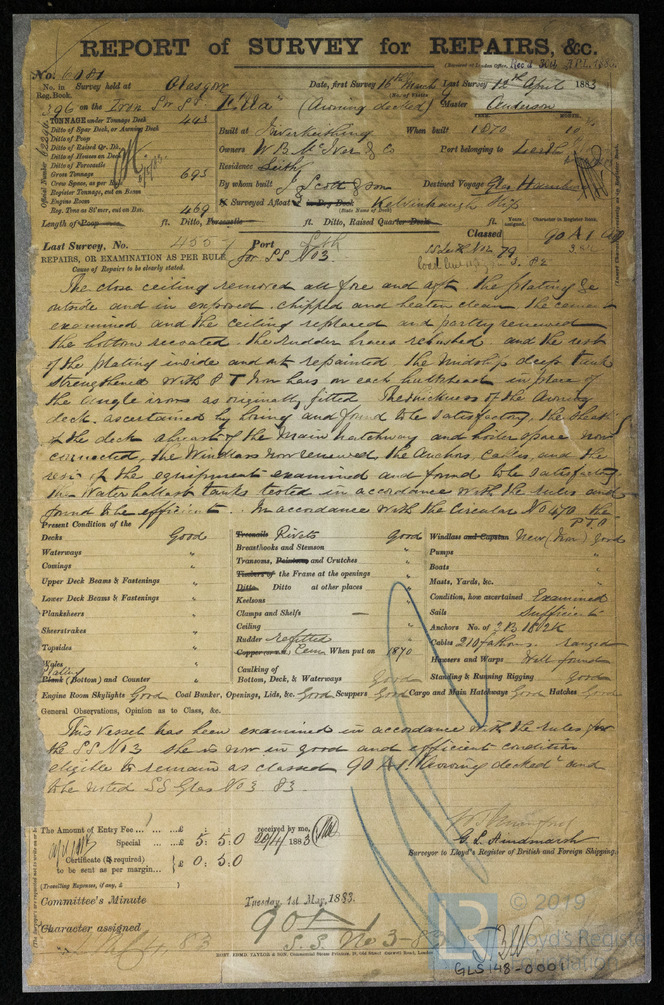 REPORT of SURVEY for REPAIRS, &c.
(Received at London Office, Rec'd 30th APL. 1883)
No. 6181
No. in Reg. Book. Survey held at Glasgow Date, first Survey 16th March Last Survey 12th April 1883
396 on the Iron "Ella" (Awning decked) Master Anderson
TONNAGE under Tonnage Deck 443
Ditto of Spar Deck, or Awning Deck
Ditto of Poop
Ditto of Raised Qr. Dk.
Ditto of Houses on Deck
Ditto of Forecastle
Gross Tonnage 695
Crew Space, as per
Register Tonnage, cut on Beam
Engine Room
Reg. Tons as St'mer, cut on Bm. 469
YEAR. MONTH.
Built at Inverkeithing When built 1870 10
Owners W B McIver & Co Port belonging to Leith
Residence Leith
By whom built J Scott & Son Destined Voyage Glas Hamburg
If Surveyed Afloat or in Dry Dock Kelvinhaugh Slip
(State Name of Dock)
Length of Poop ft. Ditto, Forecastle ft. Ditto, Raised Quarter Deck ft.
Years assigned. Character in Register Book.
Classed 90 A 1
Last Survey, No. 4557 Port Lth
SS Lth No 2 79
3.82
REPAIRS, OR EXAMINATION AS PER RULE for SS No 3.
Cause of Repairs to be clearly stated.
The close ceiling removed all fore and aft the plating &c
outside and in exposed chipped and beaten clean the cement
examined and the ceiling replaced and partly renewed
the bottom recoated. the rudder braces rebushed and the rest
of the plating inside and out repainted. the midship deep tank
strengthened with 8 T Iron bars on each bulkhead in place of
the angle irons as originally fitted. The thickness of the Awning
deck ascertained by boring and found to be satisfactory, the
of the deck abreast of the Main hatchway and boiler space now
connected, the Windlass now renewed the Anchors, Cables, and the
rest of the equipment examined and found to be satisfactory
the Water ballast tanks tested in accordance with the rules and
found to be efficient. In accordance with the Circular No 470 the
PTO
Present Condition of the
Decks Good
Waterways "
Comings "
Upper Deck Beams & Fastenings "
Lower Deck Beams & Fastenings "
Planksheers "
Sheerstrakes "
Topsides "
Wales "
Plating
Plank (Bottom) and Counter "
Treenails Rivets Good
Breasthooks and Stemson "
Transoms, Pointers and Crutches "
Timbers of the Frame at the openings "
Ditto. Ditto at other places "
Keelsons "
Clamps and Shelfs "
Ceiling "
Rudder refitted
Cem When put on 1870
Caulking of
Bottom, Deck, & Waterways Good
Windlass and Capstan New (Iron) Good
Pumps "
Boats "
Masts, Yards, &c. "
Condition, how ascertained Examined
Sails Sufficient
Anchors No. of 3B 1S 2K
Cables 210 fathoms. ranged
Hawsers and Warps Well found
Standing & Running Rigging Good
Engine Room Skylights Good Coal Bunker, Openings, Lids, &c. Good Scuppers Good Cargo and Main Hatchways Good Hatches Good
General Observations, Opinion as to Class, &c.
This Vessel has been examined in accordance with the rules for
the SS No 3 she is now in good and efficient condition
eligible to remain as classed 90 A1 "Awning decked" and
to be noted SS Glas No 3 83.
The Amount of Entry Fee £ : : received by me,
Special £ 5 : 5 : 0 20/4/1883
Certificate (if required) £ 0 : 5 : 0
to be sent as per margin
(Travelling Expenses, if any, £ )
G. S. Hindmarsh
Surveyor to Lloyd's Register of British and Foreign Shipping.
Committee's Minute Tuesday, 1st May, 1883.
Character assigned 90 A 1
S.S. No 3-83
PORT, EDMD. TAYLOR & SON, Commercial Steam Printers
© 2019
LR
Lloyd's Register
Foundation
GLS 148-0001